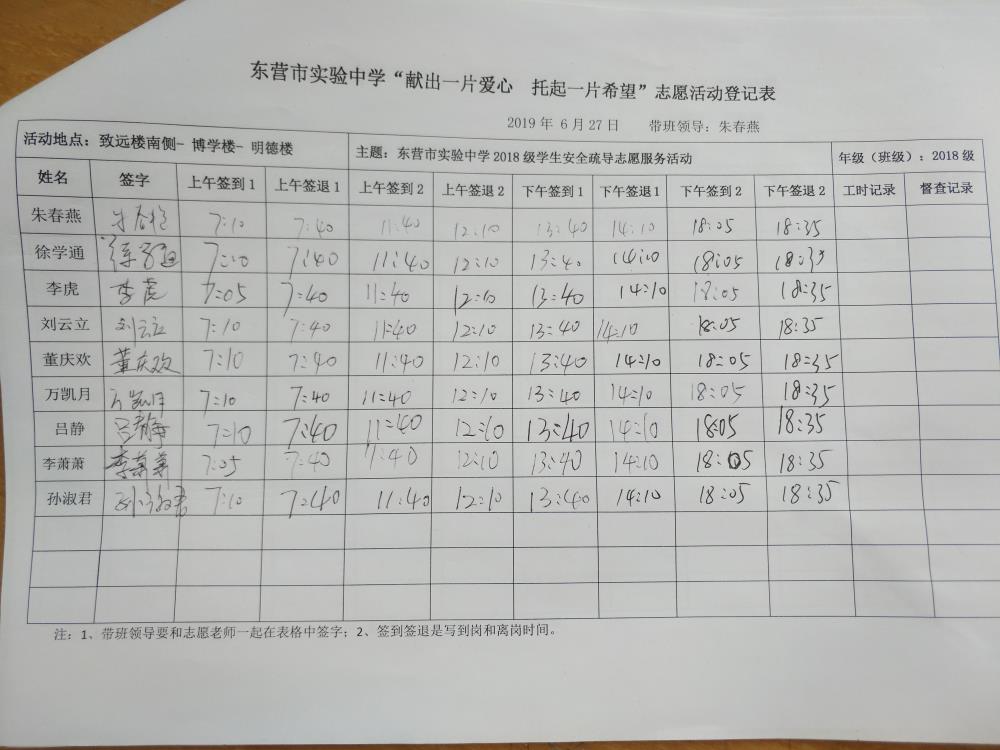 东营市实验中学“献出一片爱心 托起一片希望”志愿活动登记表
2019 年 6 月 27 日 带班领导：朱春燕
活动地点：致远楼南侧- 博学楼- 明德楼 主题：东营市实验中学 2018 级学生安全疏导志愿服务活动 年级（班级）：2018 级
姓名 签字 上午签到 1 上午签退 1 上午签到 2 上午签退 2 下午签到 1 下午签退 1 下午签到 2 下午签退 2 工时记录 督查记录
朱春燕 朱春燕 7:10 7:40 11:40 12:10 13:40 14:10 18:05 18:35
徐学通 徐学通 7:10 7:40 11:40 12:10 13:40 14:10 18:05 18:35
李虎 李虎 7:05 7:40 11:40 12:10 13:40 14:10 18:05 18:35
刘云立 刘云立 7:10 7:40 11:40 12:10 13:40 14:10 18:05 18:35
董庆欢 董庆欢 7:10 7:40 11:40 12:10 13:40 14:10 18:05 18:35
万凯月 万凯月 7:10 7:40 11:40 12:10 13:40 14:10 18:05 18:35
吕静 吕静 7:10 7:40 11:40 12:10 13:40 14:10 18:05 18:35
李萧萧 李萧萧 7:05 7:40 11:40 12:10 13:40 14:10 18:05 18:35
孙淑君 孙淑君 7:10 7:40 11:40 12:10 13:40 14:10 18:05 18:35
注：1、带班领导要和志愿老师一起在表格中签字；2、签到签退是写到岗和离岗时间。